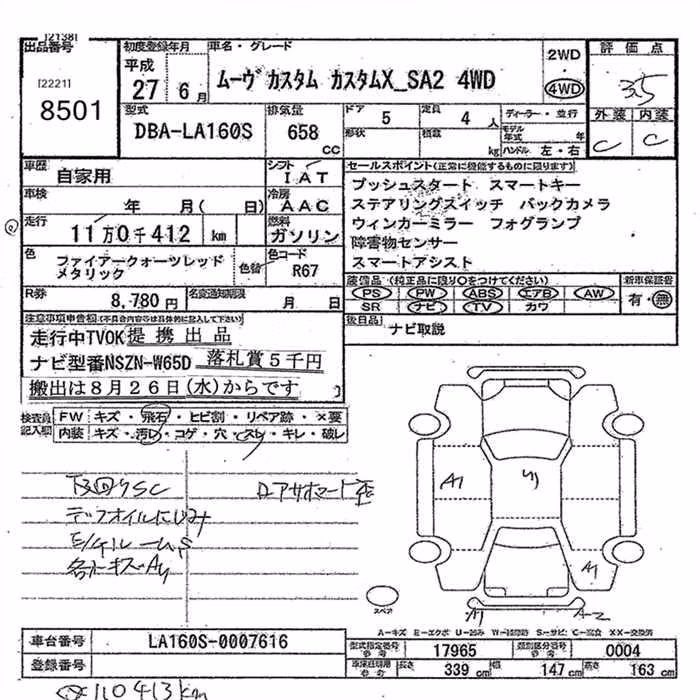 [2138]
出品番号
[2221]
8501
初度登録年月
平成
27 6月
車名・グレード
ムーヴ カスタム カスタムX_SA2 4WD
2WD
4WD
評価点
3.5
外装 内装
C C
型式
DBA-LA160S
排気量
658
cc
ドア
5
定員
4 人
形状
積載
kg
ディーラー・並行
モデル年式 年
ハンドル 左・右
車歴
自家用
シフト
IAT
車検
年 月( 日)
冷房
AAC
走行
11万0千412 km
燃料
ガソリン
色
ファイアークォーツレッド
メタリック
色替
色コード
R67
R券
8,780円
名変通知期限
月 日
セールスポイント(正常に機能するものに限ります)
プッシュスタート スマートキー
ステアリングスイッチ バックカメラ
ウィンカーミラー フォグランプ
障害物センサー
スマートアシスト
装備品(純正品に限り○をつけてください)
PS PW ABS エアB AW
SR ナビ TV カワ
新車保証書
有・無
後日品
ナビ取説
注意事項申告欄(不具合内容等は具体的に記入して下さい)
走行中TVOK 提携出品
ナビ型番NSZN-W65D 落札賞5千円
搬出は8月26日(水)からです
検査員記入欄
FW キズ・飛石・ヒビ割・リペア跡・×要
内装 キズ・汚れ・コゲ・穴・スレ・キレ・破レ
デフオイルにじみ
A1
A1
A1
A-2
スペア
A-キズ E-エクボ U-凹み W-補修跡 S-サビ C-腐食 XX-交換済
車台番号
LA160S-0007616
登録番号
型式指定番号
参考
17965
類別区分番号
参考
0004
長さ
339 cm
幅
147 cm
高さ
163 cm
110413km